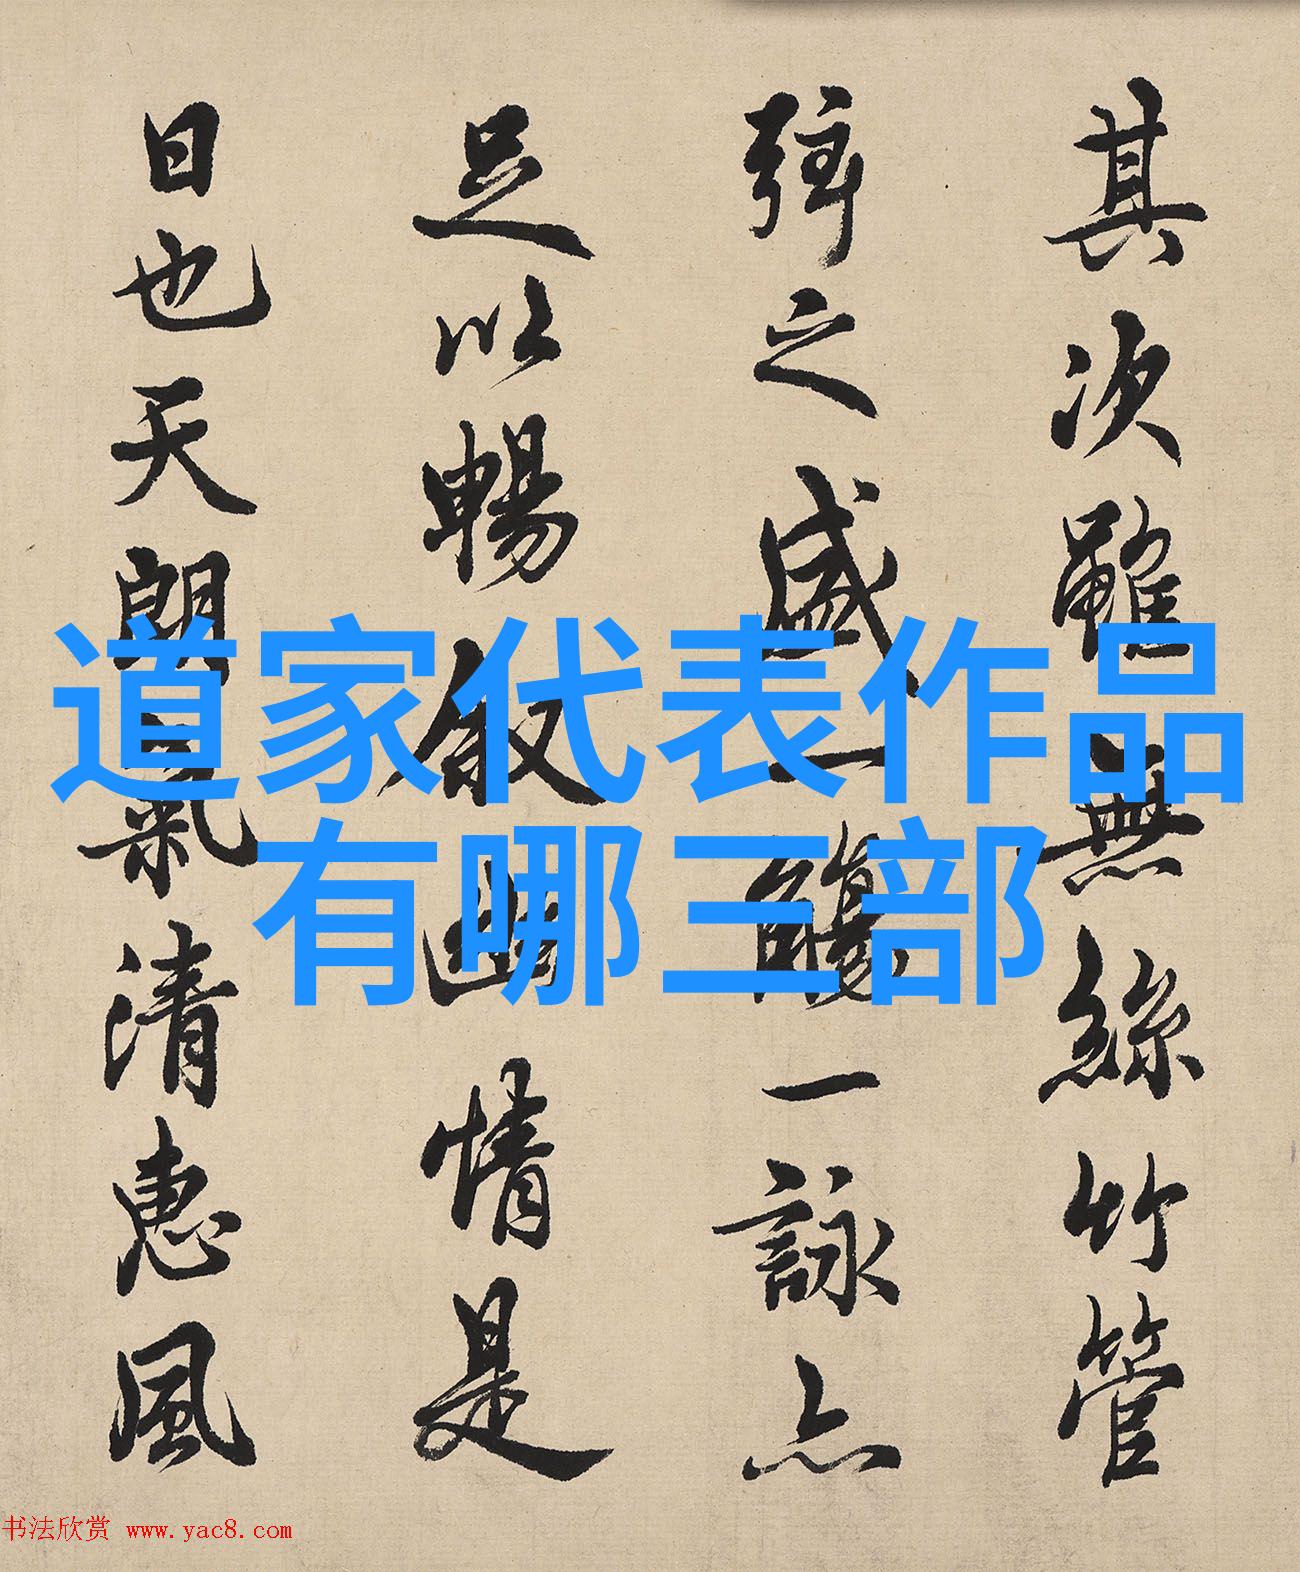 其次雖無絲竹管
弦之盛一觴一詠亦
足以暢敘幽情是
日也天朗氣清惠風
道家代表作品
有哪三部
书法欣赏 www.yac8.com